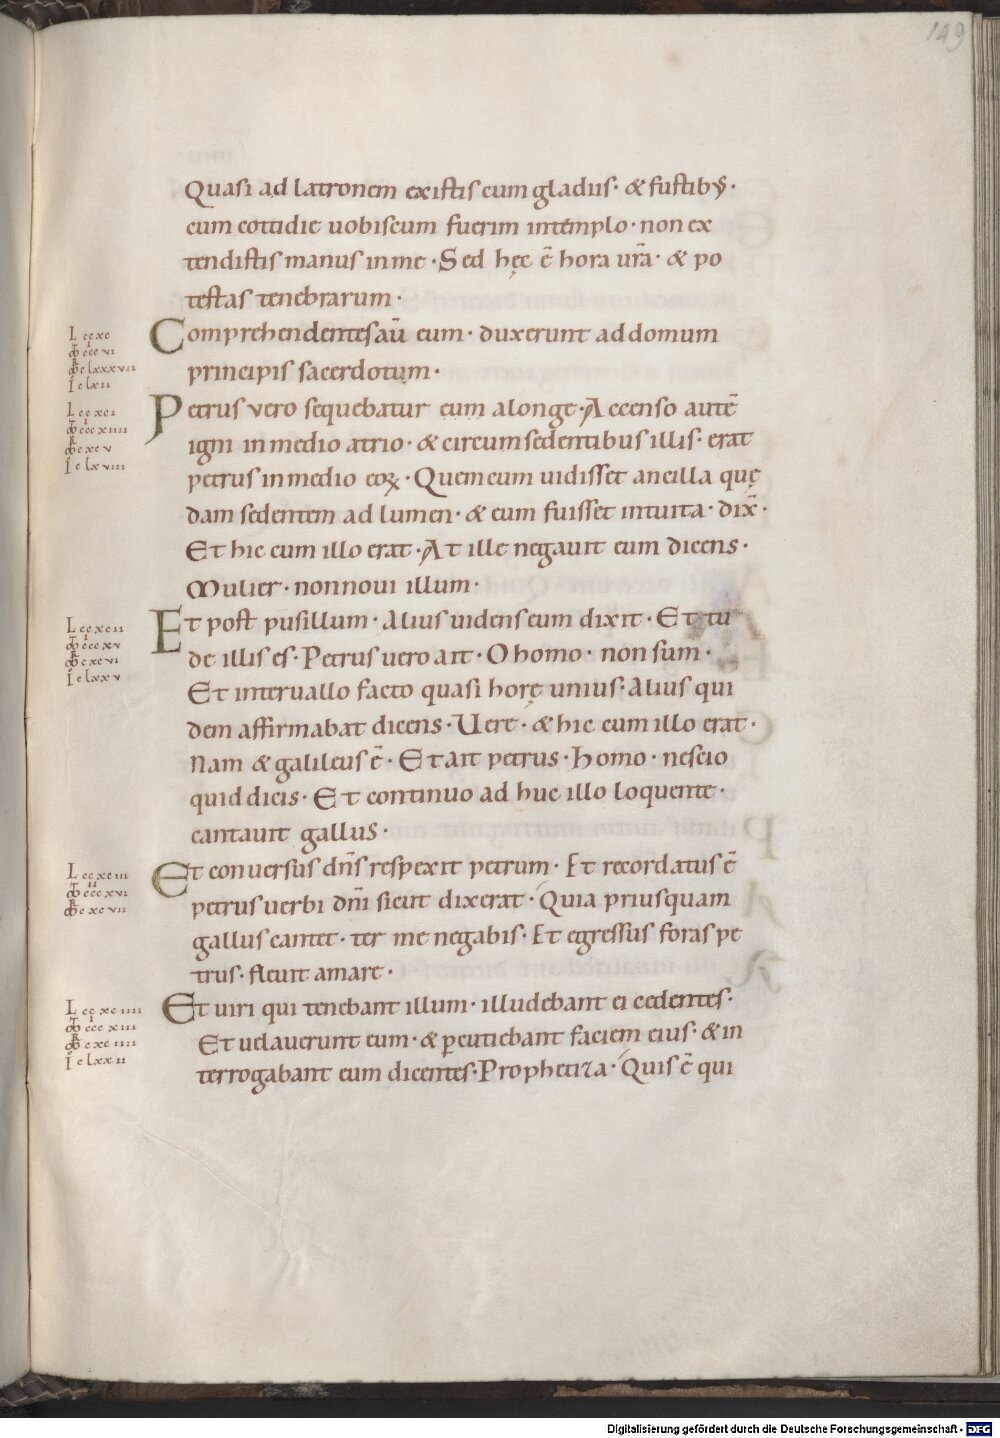 149
Quasi ad latronem existis cum gladiis· & fustibꝰ·
cum cottidie uobiscum fuerim intemplo· non ex
tendistis manus in me· Sed hęc ē hora ur̄a· & po
testas tenebrarum·
Comprehendentes aū eum· duxerunt ad domum
principis sacerdotum·
Petrus vero sequebatur eum alonge· Accenso autē
igni in medio atrio· & circumsedentibus illis· erat
petrus in medio eoꝝ· Quem cum uidisset ancilla quę
dam sedentem ad lumen· & eum fuisset intuita· dix̄·
Et hic cum illo erat· At ille negauit eum dicens·
Mulier· non noui illum·
Et post pusillum· Alius uidens eum dixit· Et tu
de illis es· Petrus uero ait· O homo· non sum·
Et interuallo facto quasi horę unius· Alius qui
dem affirmabat dicens· Vere· & hic cum illo erat·
Nam & galileus ē· Et ait petrus· Homo· nescio
quid dicis· Et continuo ad huc illo loquente·
cantauit gallus·
Et conuersus dn̄s respexit petrum· Et recordatus ē
petrus uerbi dn̄i sicut dixerat· Quia priusquam
gallus cantet· ter me negabis· Et egressus foras pe
trus· fleuit amare·
Et uiri qui tenebant illum· illudebant ei cedentes·
Et uelauerunt eum· & ꝑcutiebant faciem eius· & in
terrogabant eum dicentes· Prophetiza· Quis ē qui
L ccxc
ccc vi
c lxxxvii
I c lxii
L ccxci
ccc xiiii
c xc v
I c lxviii
L ccxcii
ccc xv
c xc vi
I c lxx v
L ccxciii
ccc xvi
c xc vii
L ccxciiii
ccc xiii
c xc iiii
I c lxxii
Digitalisierung gefördert durch die Deutsche Forschungsgemeinschaft - DFG